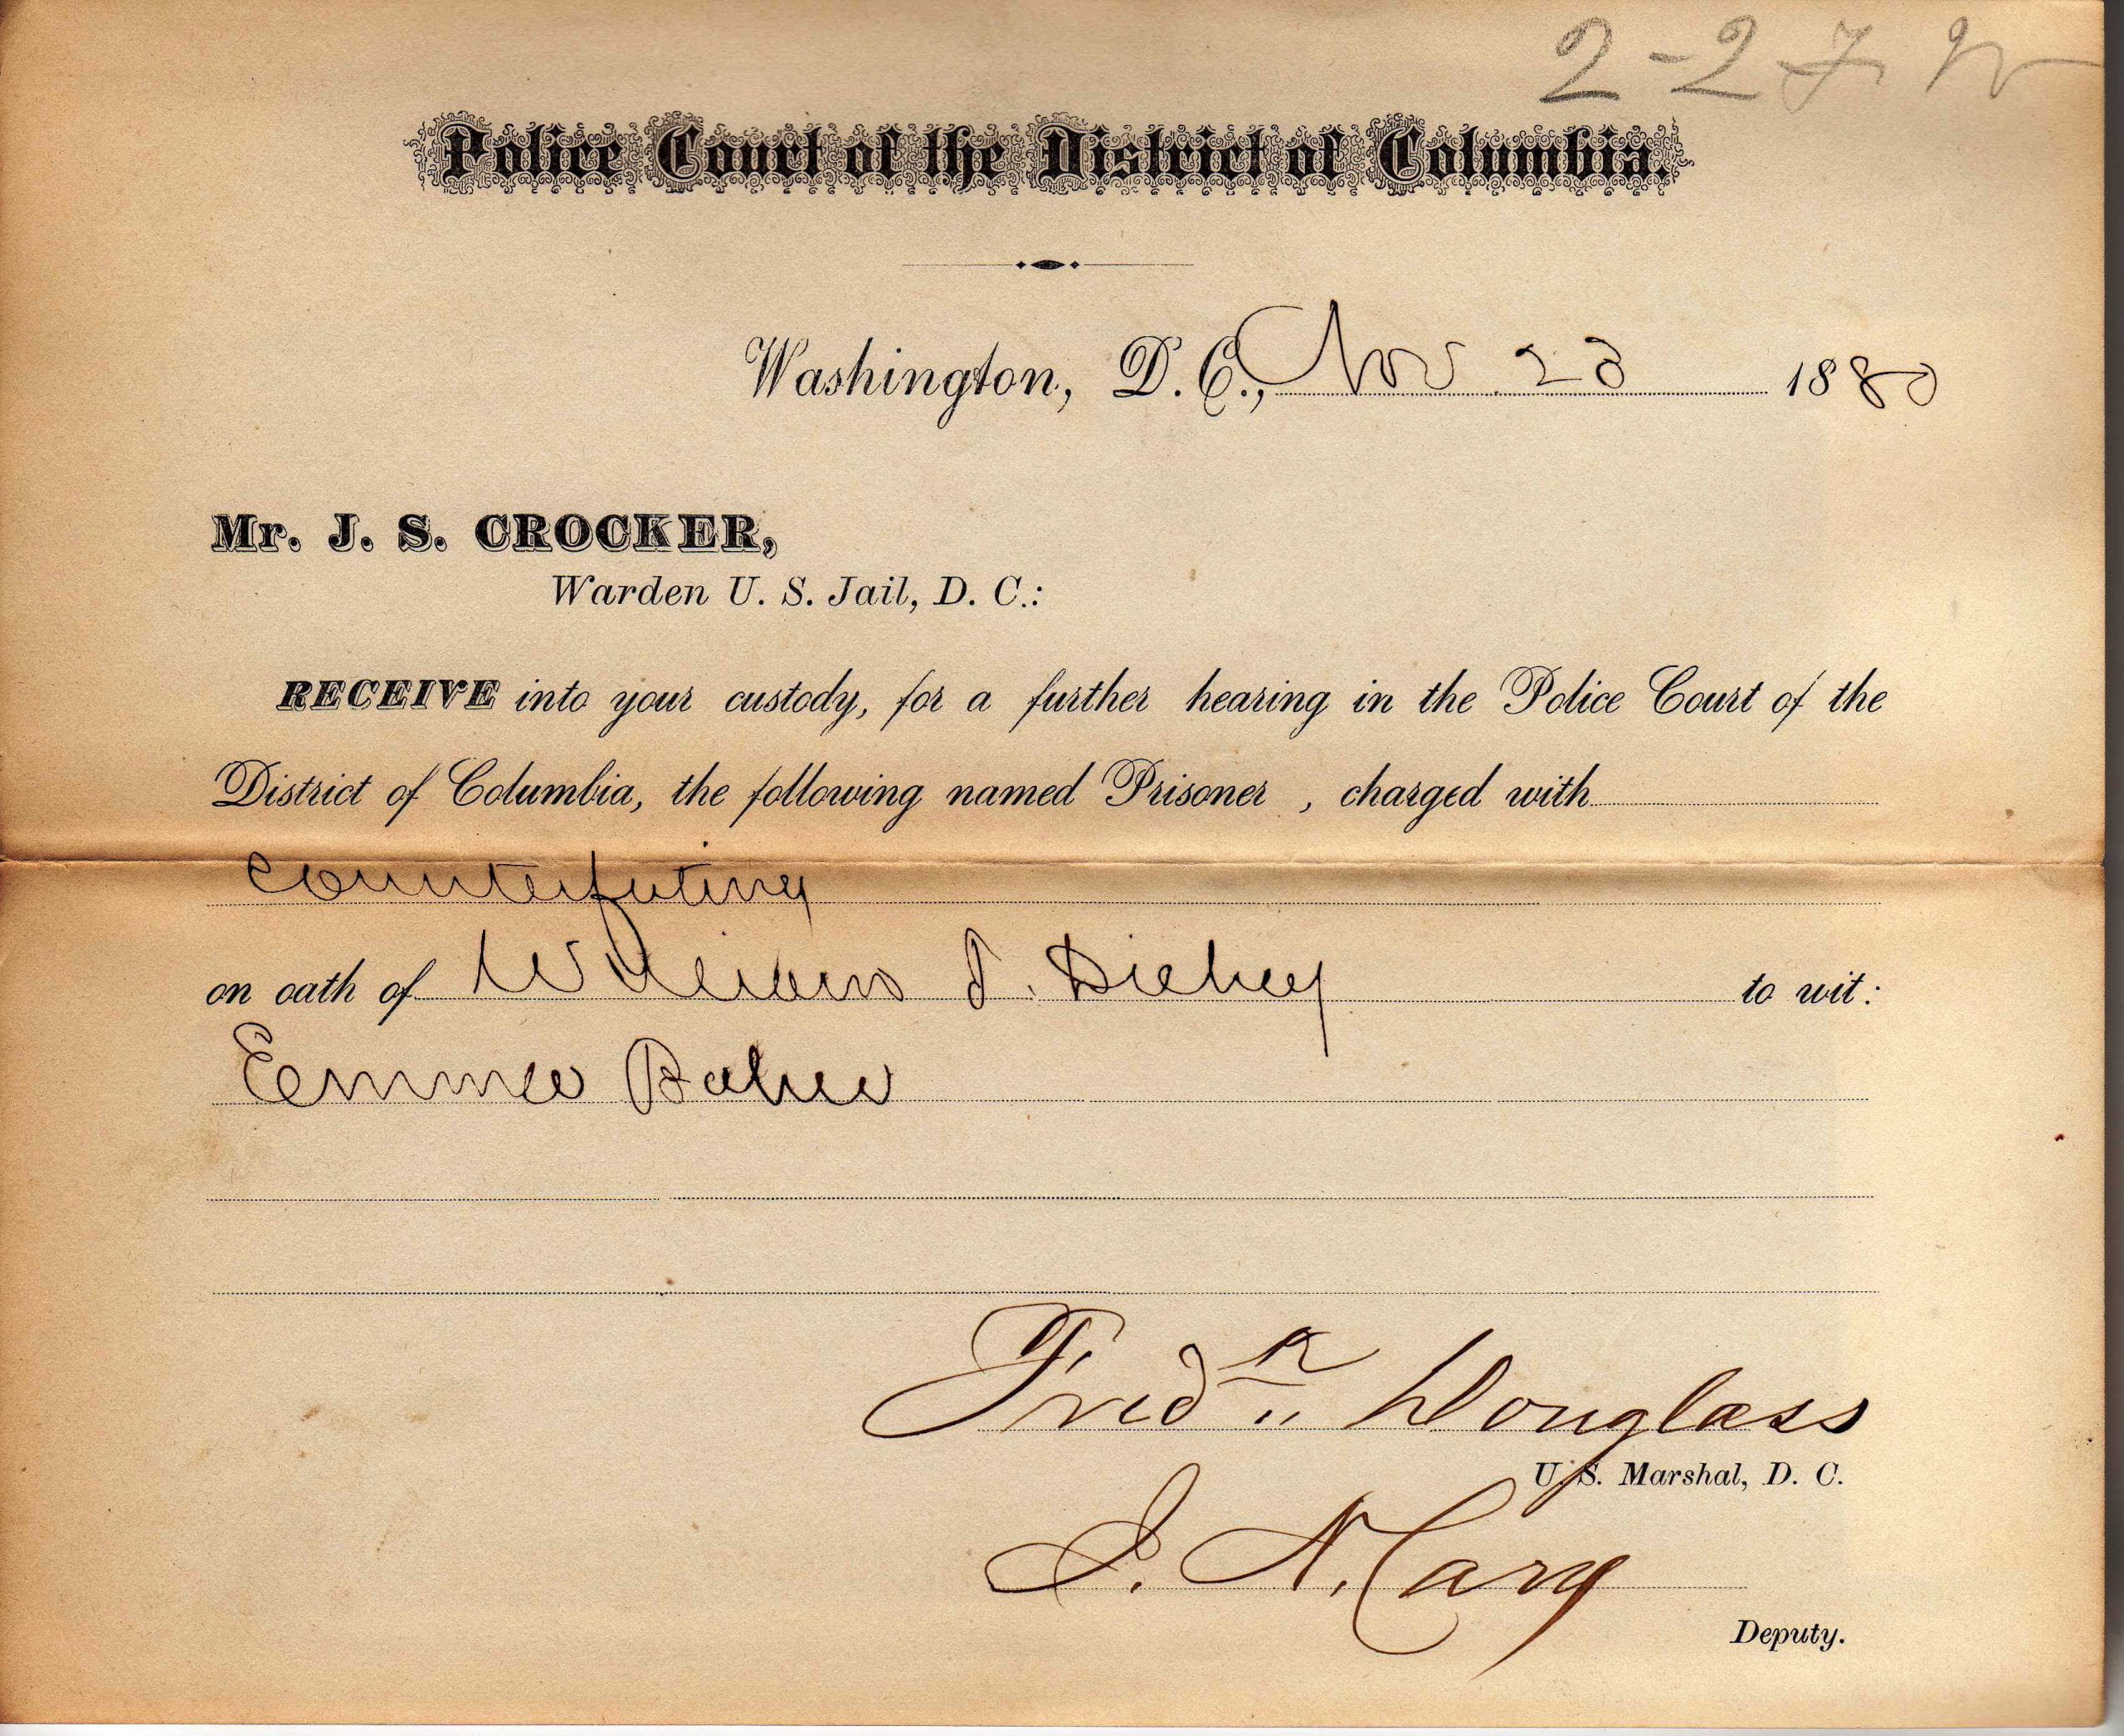 2-27
Police Court of the District of Columbia.
Washington, D. C., Nov 23 1880
Mr. J. S. CROCKER,
Warden U. S. Jail, D. C.:
RECEIVE into your custody, for a further hearing in the Police Court of the
District of Columbia, the following named Prisoner , charged with
Counterfeiting
on oath of William P. Dickey to wit:
Emma Baker
Fredk Douglass
U. S. Marshal, D. C.
Cary
Deputy.